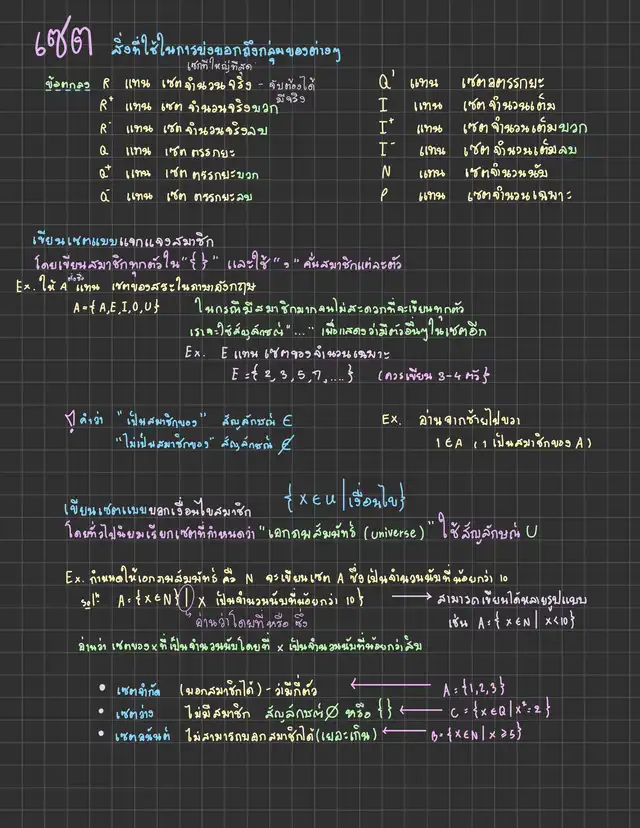 เซต สิ่งที่ใช้ในการบ่งบอกถึงกลุ่มของต่างๆ
เซตที่ใหญ่ที่สุด
ข้อตกลง R แทน เซตจำนวนจริง - จับต้องได้ มีจริง
R⁺ แทน เซตจำนวนจริงบวก
R⁻ แทน เซตจำนวนจริงลบ
Q แทน เซตตรรกยะ
Q⁺ แทน เซตตรรกยะบวก
Q⁻ แทน เซตตรรกยะลบ
Q' แทน เซตอตรรกยะ
I แทน เซตจำนวนเต็ม
I⁺ แทน เซตจำนวนเต็มบวก
I⁻ แทน เซตจำนวนเต็มลบ
N แทน เซตจำนวนนับ
P แทน เซตจำนวนเฉพาะ
เขียนเซตแบบแจกแจงสมาชิก
โดยเขียนสมาชิกทุกตัวใน "{ }" และใช้ " , " คั่นสมาชิกแต่ละตัว
Ex. ให้ A แทน เซตของสระในภาษาอังกฤษ
A = {A,E,I,O,U}
ในกรณีมีสมาชิกมากจนไม่สะดวกที่จะเขียนทุกตัว
เราจะใช้สัญลักษณ์ "..." เพื่อแสดงว่ามีตัวอื่นๆในเซตอีก
Ex. E แทน เซตของจำนวนเฉพาะ
E = { 2, 3, 5, 7, .... } (ควรเขียน 3-4 ตัว}
คำว่า "เป็นสมาชิกของ" สัญลักษณ์ ∈
"ไม่เป็นสมาชิกของ" สัญลักษณ์ ∉
Ex. อ่านจากซ้ายไปขวา
1 ∈ A (1 เป็นสมาชิกของ A)
เขียนเซตแบบบอกเงื่อนไขสมาชิก { x ∈ U | เงื่อนไข}
โดยทั่วไปนิยมเรียกเซตที่กำหนดว่า "เอกภพสัมพัทธ์ (universe)" ใช้สัญลักษณ์ U
Ex. กำหนดให้เอกภพสัมพัทธ์ คือ N จะเขียนเซต A ซึ่งเป็นจำนวนนับที่น้อยกว่า 10
solⁿ A = {x ∈ N} | x เป็นจำนวนนับที่น้อยกว่า 10} ⟶ สามารถเขียนได้หลายรูปแบบ
อ่านว่าโดยที่ หรือ ซึ่ง
เช่น A = { x ∈ N | x < 10}
อ่านว่า เซตของ x ที่เป็นจำนวนนับโดยที่ x เป็นจำนวนนับที่น้อยกว่าสิบ
• เซตจำกัด (บอกสมาชิกได้) - ว่ามีกี่ตัว ⟵ A = {1,2,3}
• เซตว่าง ไม่มีสมาชิก สัญลักษณ์ ∅ หรือ { } ⟵ C = {x ∈ Q | x² = 2}
• เซตอนันต์ ไม่สามารถบอกสมาชิกได้ (เยอะเกิน) ⟵ B = {x ∈ N | x ≥ 5}